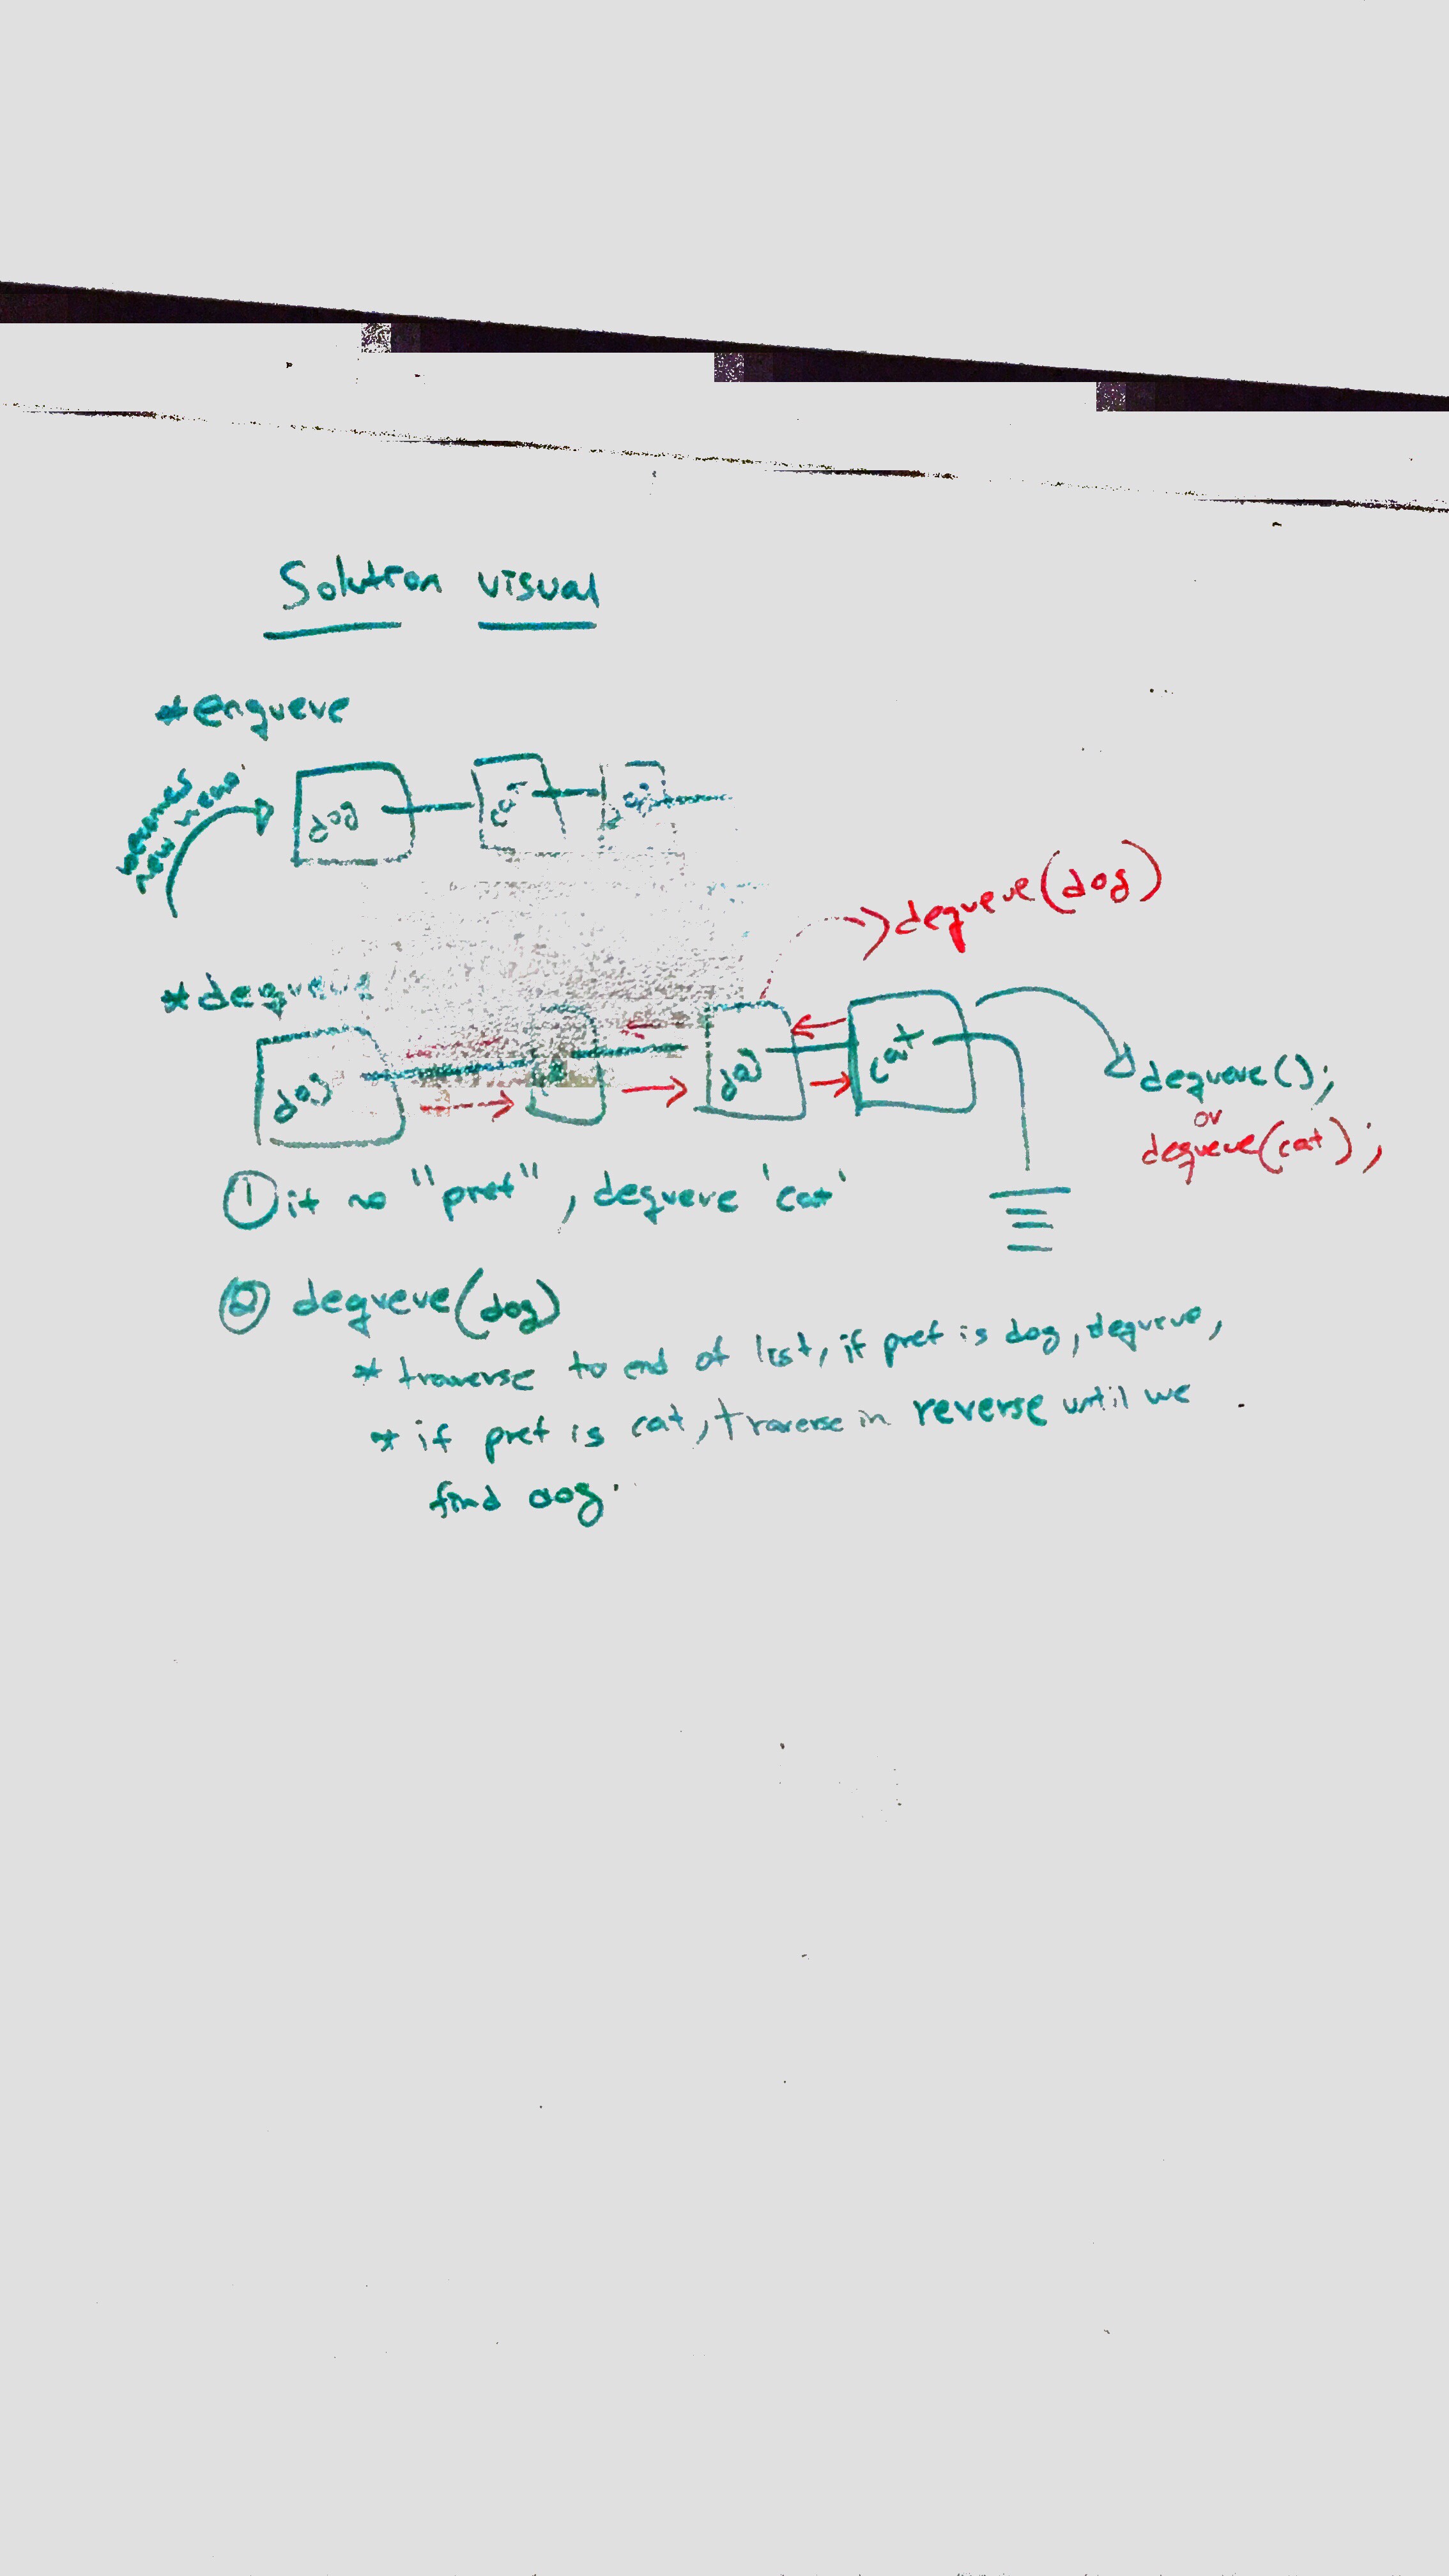 Solution visual
*enqueue
becomes
new head
dog cat
dequeue(dog)
*dequeue
dog dog cat
dequeue();
or
dequeue(cat);
① if no "pref", dequeue 'cat'
② dequeue(dog)
* traverse to end of list, if pref is dog, dequeue,
* if pref is cat, traverse in reverse until we
find dog.